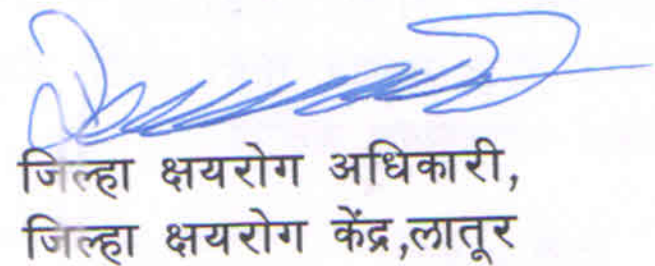 जिल्हा क्षयरोग अधिकारी,
जिल्हा क्षयरोग केंद्र,लातूर